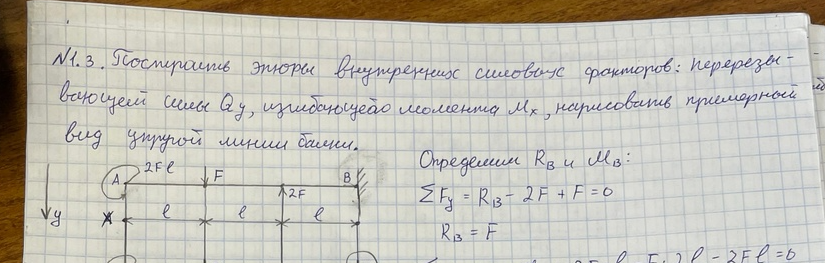 N1.3. Построить эпюры внутренних силовых факторов: перерезы-
вающей силы Qy, изгибающего момента Mx, нарисовать примерный
вид упругой линии балки.
A 2Fl F 2F B
y l l l
Определим RB и MB:
ΣFy = RB - 2F + F = 0
RB = F
2F l - F · 2l - 2Fl = 0